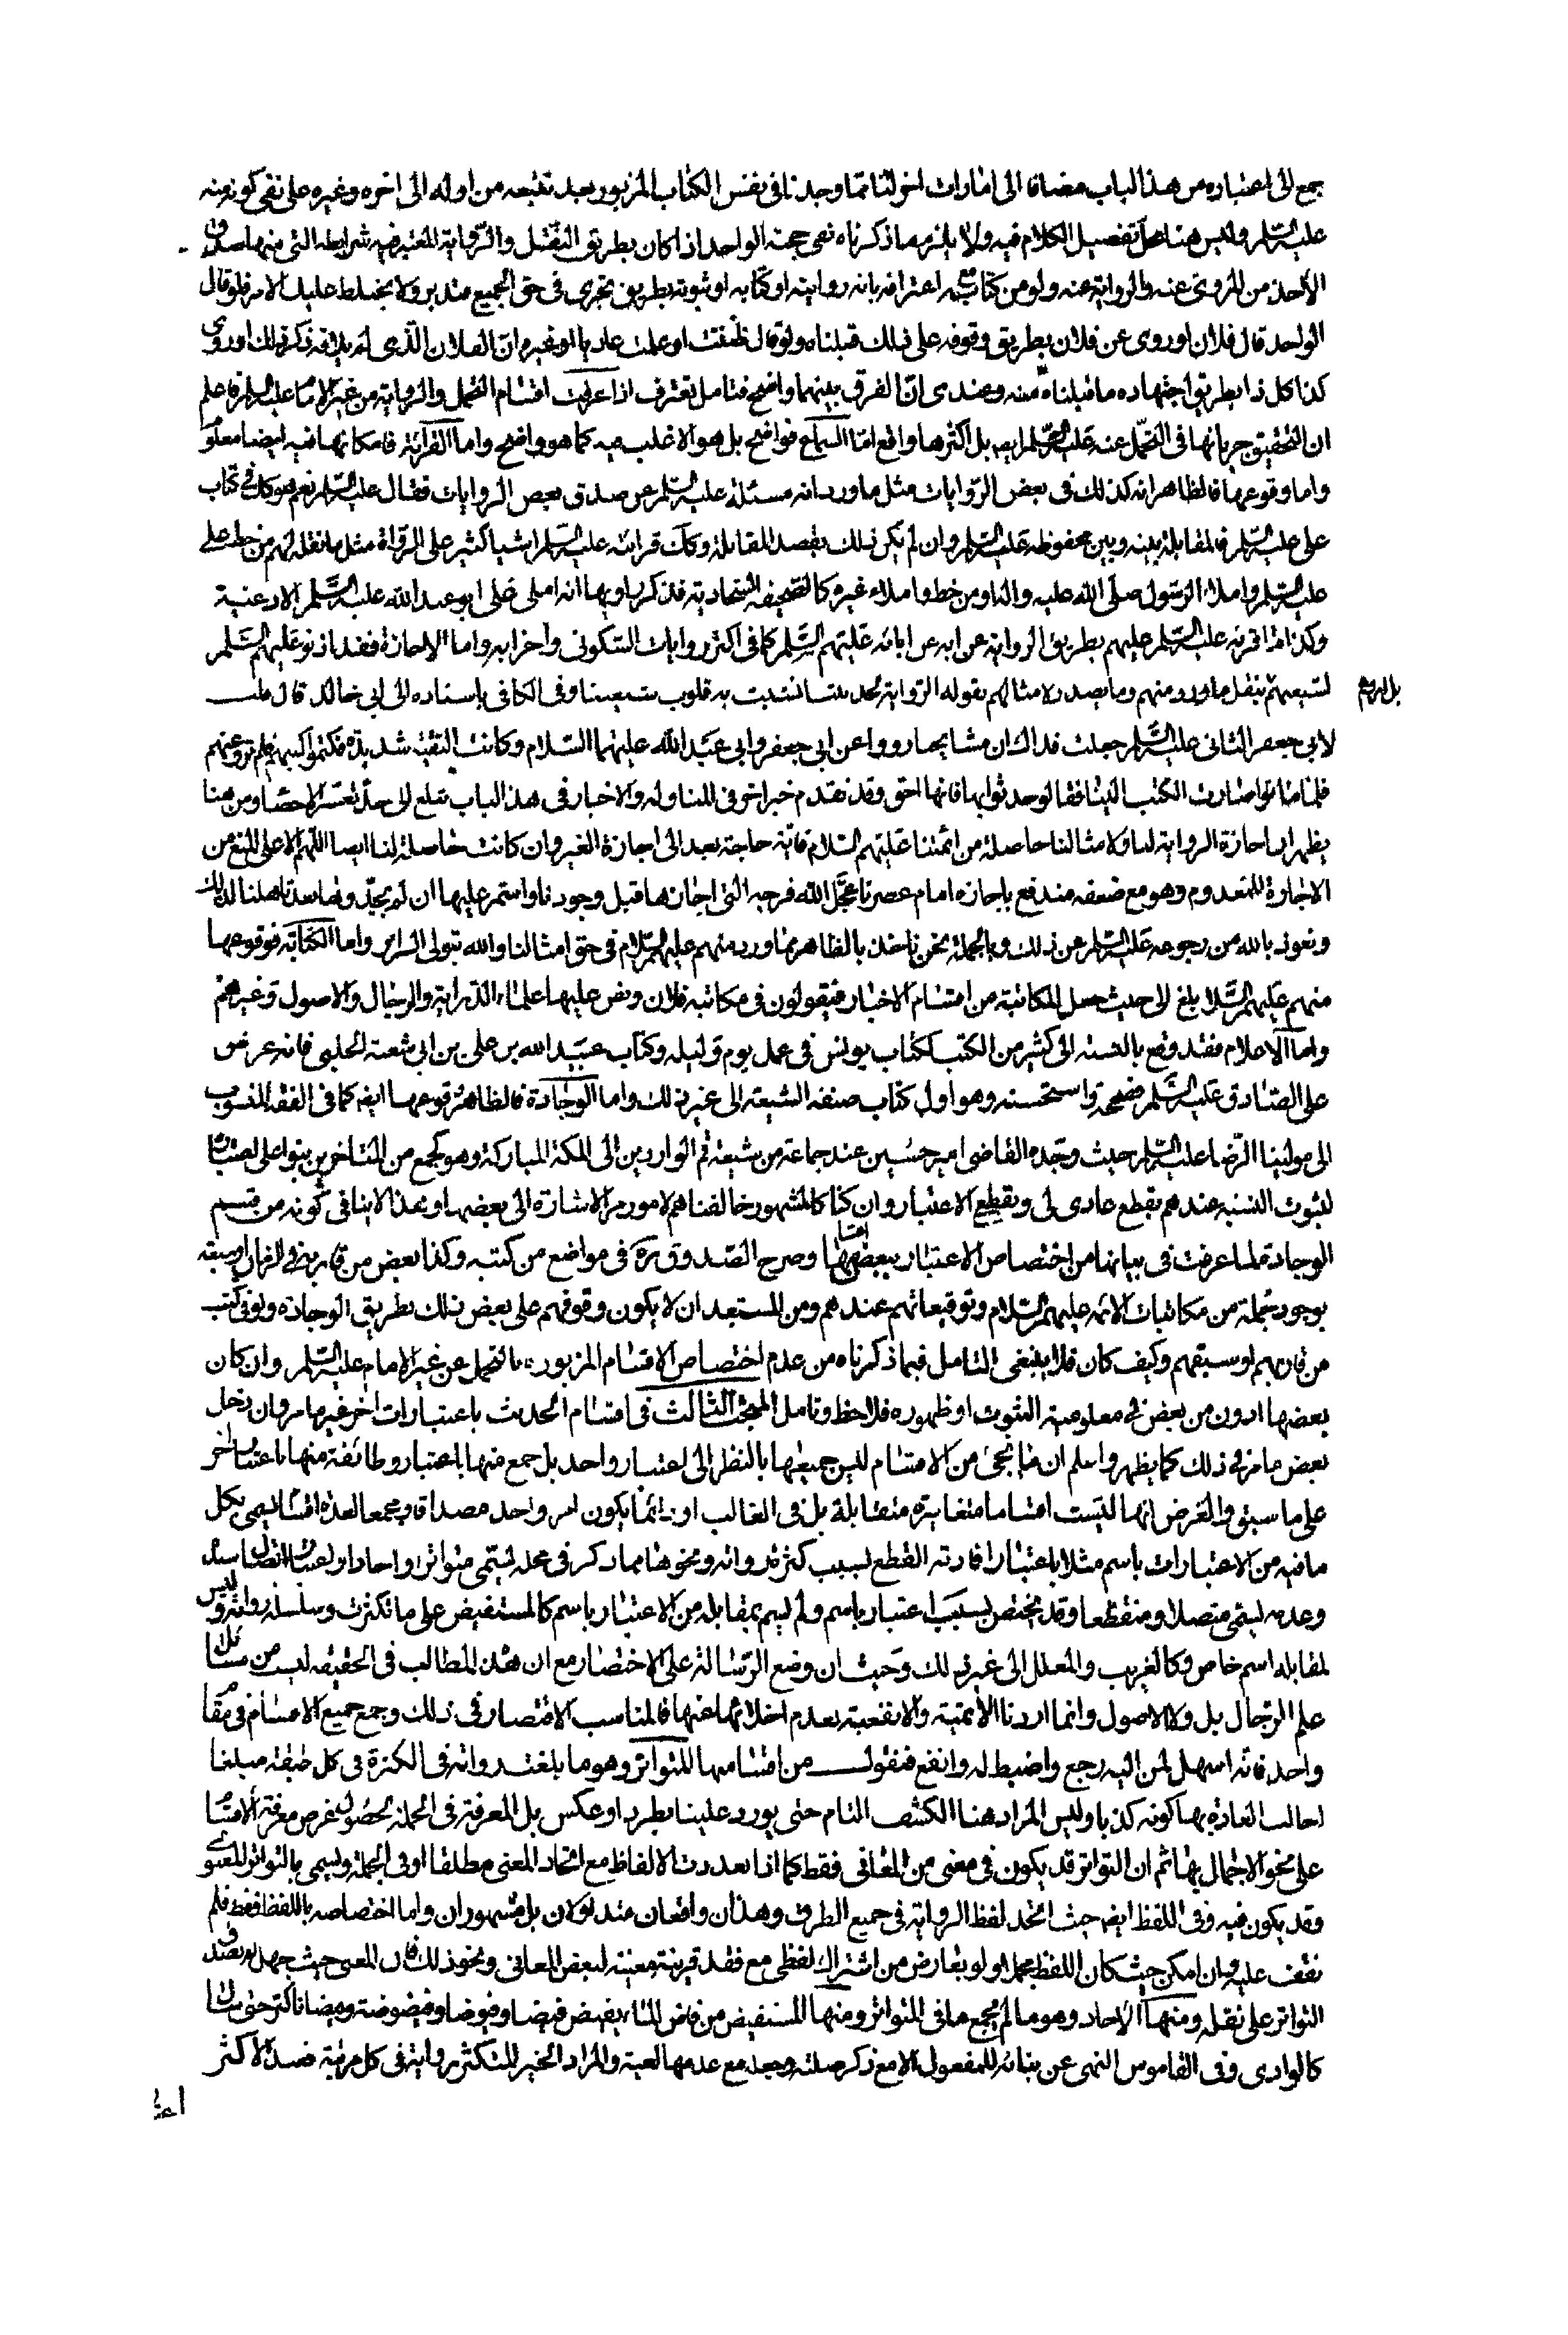 جمع لى اعتباره من هذا الباب مضافا الى امارات اخر لنا مما وجدنا فى نفس الكتاب المزبور بعد تتبعه من اوله الى اخره وغيره على نفى كونه منه
عليه السلم وليس هنا محل تفصيل الكلام فيه ولا يلزم ما ذكرناه نفى حجية الواحد اذا كان بطريق النقل والرواية المعتبر فيه شرايطه التى منها صدق
الاخذ من المروى عنه والرواية عنه ولو من كتاب مع اعترافه بانه روايته او كتابه او ثبوته بطريق يجرى فى حق الجميع فتدبر ولا يختلط عليك الامر فلو قال
الواحد قال فلان او روى عن فلان بطريق وقوفه على ذلك قبلناه ولو قال ظننت او علمت عاديا او غيره ان الفلان الذى لم يلاقه ذكر ذلك او روى
كذا كل ذا بطريق اجتهاده ما قبلناه منه وعندى ان الفرق بينهما واضح فتامل تعترف اذا عرفت اقسام التحمل والرواية من غير الامام عليه السلم فاعلم
ان التحقيق جريانها فى التحمل عنه عليه السلم ايضا بل اكثرها واقع اما السماع فواضح بل هو الاغلب فيه كما هو واضح واما القرائة فامكانها فيه ايضا معلوم
واما وقوعها فالظاهر انه كذلك فى بعض الروايات مثل ما ورد انه مسئلة عليه السلم عن صدق بعض الروايات فقال عليه السلم نعم هو كان فى كتاب
على عليه السلم فالمقابلة بينه وبين محفوظه عليه السلم وان لم يكن ذلك بقصد المقابلة وكان قرائته عليه السلم اشيا كثير على الرواة مثل ما نقله لهم من خط على
عليه السلم واملاء الرسول صلى الله عليه واله او من خط واملاء غيره كالصحيفة السجادية فذكر راويها انه املى على ابو عبد الله عليه السلم الادعية
وكذا ما اقرئه عليه السلم عليهم بطريق الرواية عن ابيه عن ابائه عليهم السلم كما فى اكثر روايات السكونى واضرابه واما الاجازة فقد اذنوا عليهم السلم
لشيعتهم بنقل ما ورد منهم وما يصدر لامثالهم بقوله الرواية لحديثنا تثبت به قلوب شيعتنا وفى الكافى باسناده الى ابى خالد قال قلت
لابى جعفر الثانى عليه السلم جعلت فداك ان مشايخنا رووا عن ابى جعفر وابى عبد الله عليهما السلام وكانت التقية شديدة فكتموا كتبهم فلم ترو عنهم
فلما ماتوا صارت الكتب الينا فقال حدثوا بها فانها حق وقد تقدم خبر اخر فى المناوله والاخبار فى هذا الباب تبلغ الى حد يعسر الاحصاء ومن هنا
يظهر ان اجازة الرواية لنا ولامثالنا حاصلة من ائمتنا عليهم السلام فاية حاجة بعد الى اجازة الغير وان كانت حاصلة لنا ايضا اللهم الا على المنع من
الاجازة للمعدوم وهو مع ضعفه مندفع باجازة امام عصرنا عجل الله فرجه التى اجازها قبل وجودنا واستمر عليها ان لم يجدد ولها بعد تاهلنا لذلك
ونعوذ بالله من رجوعه عليه السلم عن ذلك وبالجملة نحن ناخذ بالظاهر مما ورد منهم عليهم السلام فى حق امثالنا والله يتولى السرائر واما الكتابة فوقوعها
منهم عليهم السلام بلغ الى حيث جعل المكاتبة من اقسام الاخبار فيقولون فى مكاتبة فلان ونص عليها علماء الدراية والرجال والاصول وغيرهم
واما الاعلام فقد وقع بالنسبة الى كثير من الكتب ككتاب يونس فى عمل يوم وليلة وكتاب عبيد الله بن على بن ابى شعبة الحلبى فانه عرض
على الصادق عليه السلم فصححه واستحسنه وهو اول كتاب صنفه الشيعة الى غير ذلك واما الوجادة فالظاهر وقوعها ايضا كما فى الفقه المنسوب
الى مولينا الرضا عليه السلم حيث وجده القاضى امير حسين عند جماعة من شيعة قم الواردين الى المكة المباركة وهو كجمع من المتاخرين بنوا على اعتباره
لثبوت النسبة عندهم بقطع عادى لى وبقطع الاعتبار وان كنا كالمشهور خالفناهم لامور مر الاشارة الى بعضها وبعد هذا لا ينافى كونه من قسم
الوجادة لما عرفت فى بيانها من اختصاص الاعتبار ببعض اقسامها وصرح الصدوق ره فى مواضع من كتبه وكذا بعض من قاربه فى الزمان او سبقه
بوجود جملة من مكاتبات الائمة عليهم السلام وتوقيعاتهم عندهم ومن المستبعد ان لا يكون وقوفهم على بعض ذلك بطريق الوجادة ولو فى كتب
من قاربهم او سبقهم وكيف كان فلا ينبغى التامل فيما ذكرناه من عدم اختصاص الاقسام المزبورة بالتحمل عن غير الامام عليه السلم وان كان
بعضها ادون من بعض فى معلومية الثبوت او ظهوره فلاحظ وتامل المبحث الثالث فى اقسام الحديث باعتبارات اخر غير ما مر وان دخل
بعض ما مر فى ذلك كما يظهر واعلم ان ما يجئ من الاقسام ليس جميعها بالنظر الى اعتبار واحد بل جمع منها باعتبار وطائفة منها باعتبار اخر
على ما سبق والغرض انها ليست اقساما متغايرة متقابلة بل فى الغالب اذ انما يكون امر واحد مصداقا ومجمعا لعدة اقسام يسمى بكل
ما فيه من الاعتبارات باسم مثلا باعتبار افادته القطع بسبب كثرة رواته ونحوها مما ذكر فى محله يسمى متواترا واحادا وباعتبار اتصال سنده
وعدمه يسمى متصلا ومنقطعا وقد يختص بسبب اعتبار باسم ولم يسم بمقابله من الاعتبار باسم كالمستفيض على ما تكثرت سلسلة رواته وليس
لمقابله اسم خاص وكالغريب والمعلل الى غير ذلك وحيث ان وضع الرسالة على الاختصار مع ان هذه المطالب فى الحقيقة ليست من مسائل
علم الرجال بل ولا الاصول وانما اردنا الاتمية والانفعية بعدم اخلائها عنها فالمناسب الاقتصار فى ذلك وجمع جميع الاقسام فى مقام
واحد فانه اسهل لمن اليه رجع واضبط له وانفع فنقول من اقسامها المتواتر وهو ما بلغت رواته فى الكثرة فى كل طبقة مبلغا
احالت العادة بها كونه كذبا وليس المراد هنا الكشف التام حتى يورد علينا بطرد او عكس بل المعرفة فى الجملة لحصول غرض معرفة الاقسام
على نحو الاجمال بها ثم ان التواتر قد يكون فى معنى من المعانى فقط كما اذا تعددت الالفاظ مع اتحاد المعنى مطلقا او فى الجملة ويسمى بالتواتر المعنوى
وقد يكون فيه وفى اللفظ ايضا حيث اتحد لفظ الرواية فى جميع الطرق وهذان واقعان متداولان بل مشهوران واما اختصاصه باللفظ فقط فلم
نقف عليه وان امكن حيث كان اللفظ مجملا ولو بعارض من اشتراك لفظى مع فقد قرينة معينة لبعض المعانى ونحو ذلك فان المعنى حيث جهل لم يصدق
التواتر على نقله ومنها الاحاد وهو ما لم يجمع ما فى المتواتر ومنها المستفيض من فاض الماء يفيض فيضا وفيوضا وفيضوضة وفيضانا كثر حتى سال
كالوادى وفى القاموس النهى عن بنائه للمفعول الا مع ذكر صلته وبعد مع عدمها لعبة والمراد الخبر المتكثر رواية فى كل مرتبة فبعد الاكثر
اعتبار